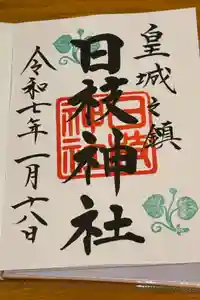 皇城之鎮
日枝神社
令和七年一月十八日